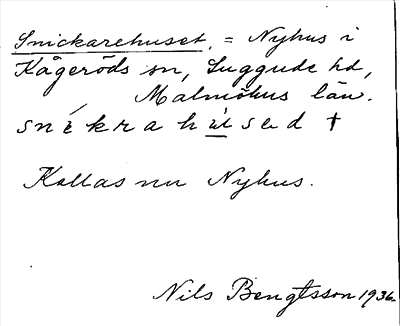 Snickarehuset, = Nyhus i
Kågeröds sn, Luggude hd,
Malmöhus län.
snékrahúsed †
Kallas nu Nyhus.
Nils Bengtsson 1936.